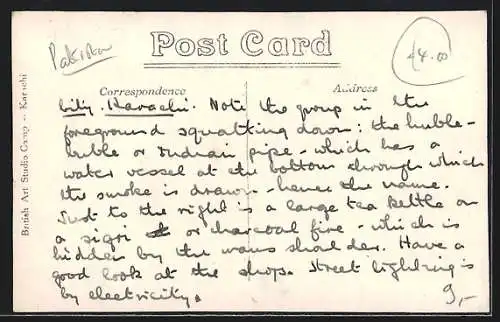 Pakistan
Post Card
£4.00
Correspondence
Address
British Art Studio. Camp - Karachi
City. Karachi. Note the group in the
foreground squatting down: the hubble-
bubble or Indian pipe - which has a
water vessel at the bottom through which
the smoke is drawn - hence the name.
Just to the right is a large tea kettle on
a sigri or charcoal fire - which is
hidden by the mans shoulder. Have a
good look at the shop. Street lighting is
by electricity.
9,-